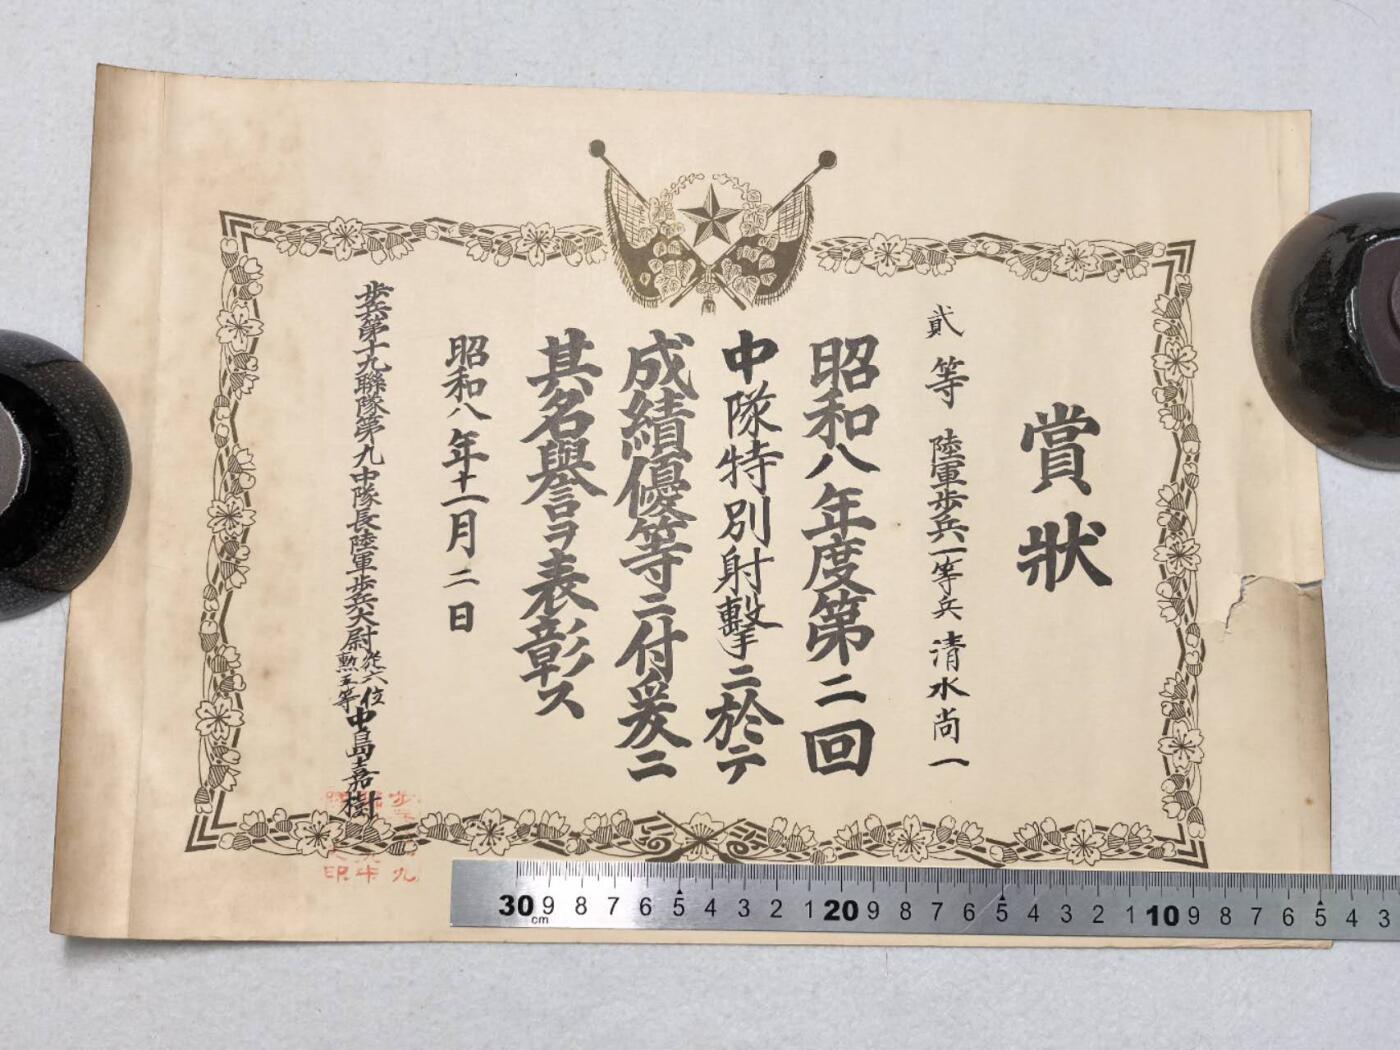 賞狀
貳等 陸軍歩兵一等兵 清水尚一
昭和八年度第二回
中隊特別射擊ニ於テ
成績優等ニ付爰ニ
其名譽ヲ表彰ス
昭和八年十一月二日
歩兵第十九聯隊第九中隊長陸軍歩兵大尉 從六位 勲五等 中島嘉樹
30 9 8 7 6 5 4 3 2 1 20 9 8 7 6 5 4 3 2 1 10 9 8 7 6 5 4 3
cm